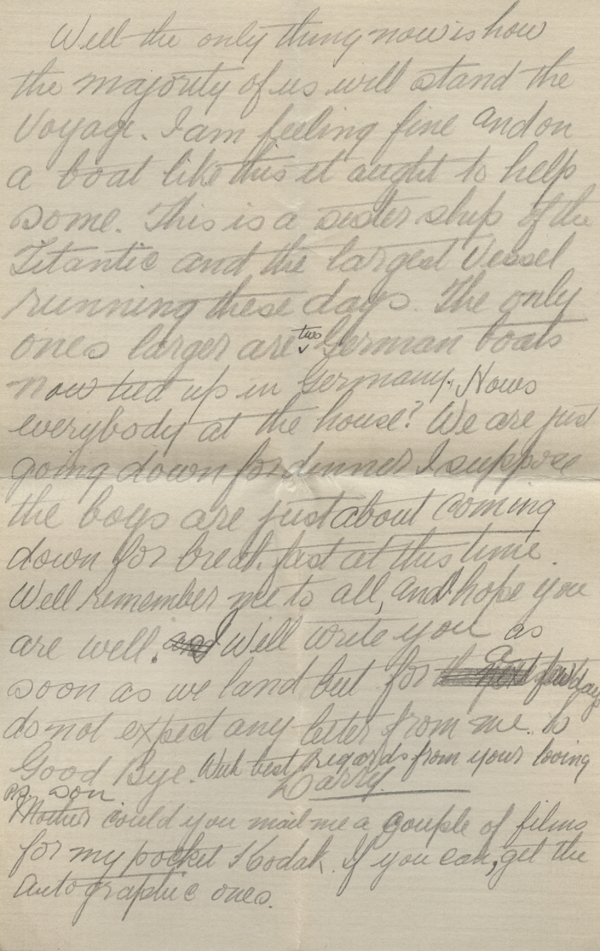 Well the only thing now is how
the majority of us will stand the
Voyage. I am feeling fine and on
a boat like this it aught to help
some. This is a sister ship of the
Titantic and the largest Vessel
running these days. The only
ones larger are two German boats
now tied up in Germany. Hows
everybody at the house? We are just
going down for dinner I suppose
the boys are just about coming
down for break.fast at this time.
Well remember me to all, and hope you
are well. and Will write you as
soon as we land but for a few days
do not expect any letter from me. So
Good Bye. With best regards from your loving
son Harry.
P.S. Mother could you mail me a couple of films
for my pocket Kodak. If you can, get the
Autographic ones.